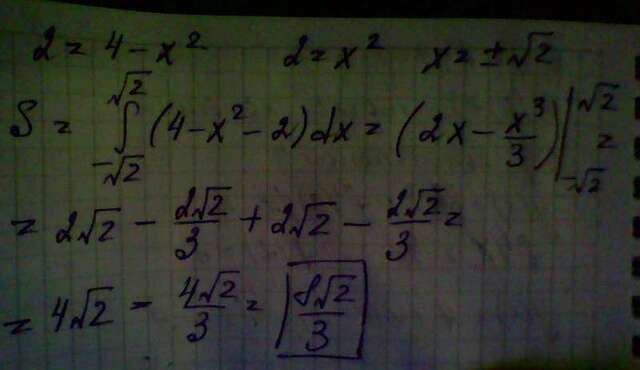 2 = 4 - x² 2 = x² x = ±√2
S = ∫_{-√2}^{√2} (4 - x² - 2) dx = (2x - x³/3) |_{-√2}^{√2} =
= 2√2 - 2√2/3 + 2√2 - 2√2/3 =
= 4√2 - 4√2/3 = 8√2/3